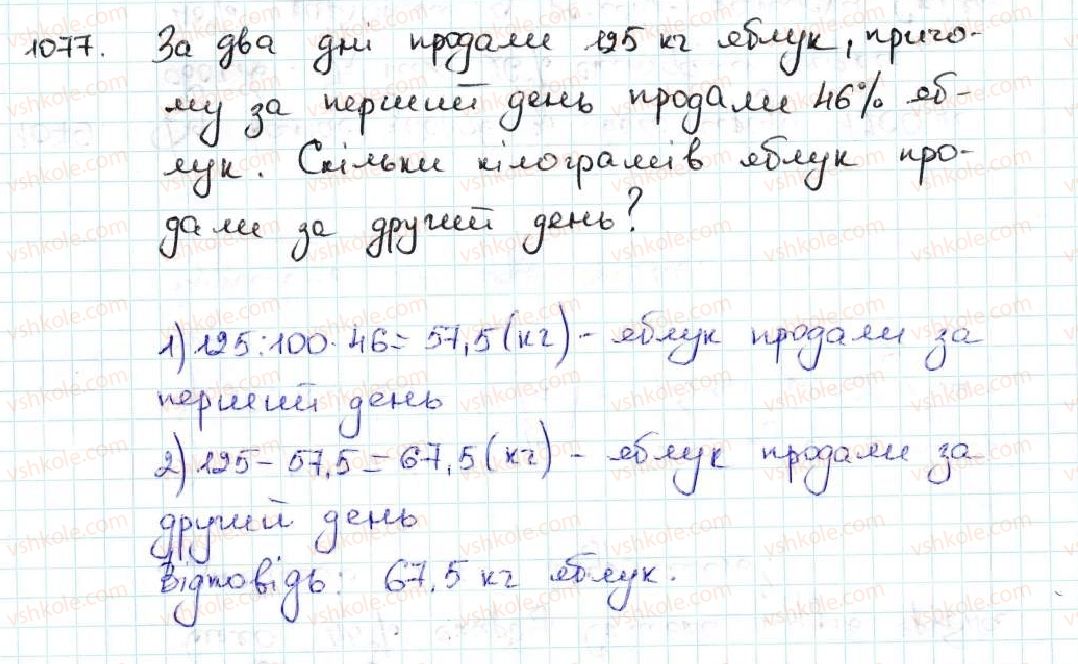 1077. За два дні продали 125 кг яблук, причо-
му за перший день продали 46% яб-
лук. Скільки кілограмів яблук про-
дали за другий день?
1) 125:100·46= 57,5 (кг) - яблук продали за
перший день
2) 125 - 57,5 = 67,5 (кг) - яблук продали за
другий день
Відповідь: 67,5 кг яблук.
vshkole.com